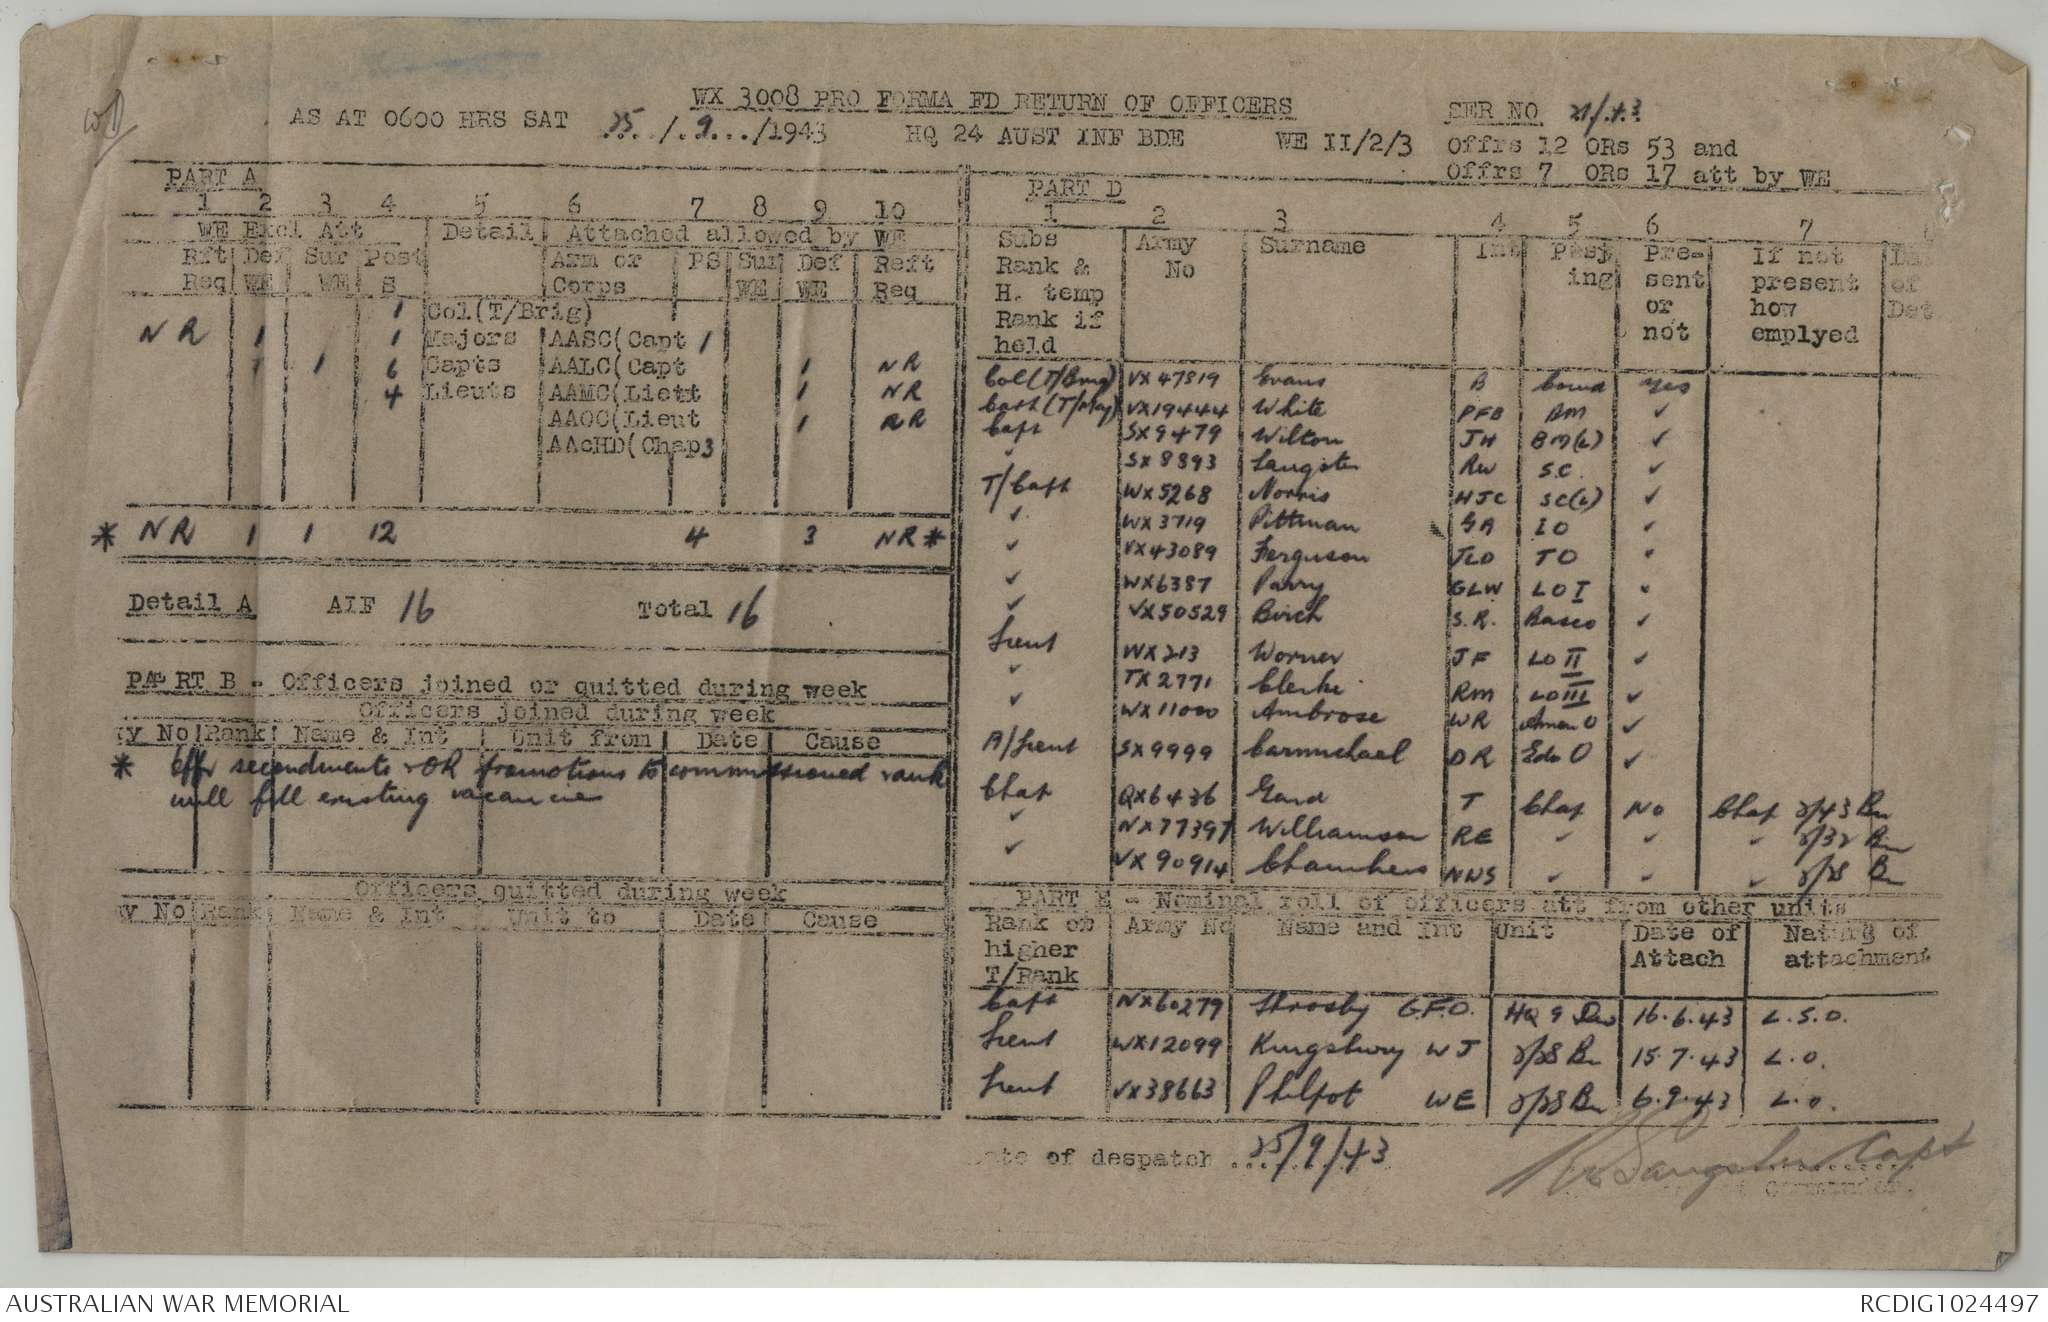 WX 3008 PRO FORMA FD RETURN OF OFFICERS
AS AT 0600 HRS SAT 25/9/1943 HQ 24 AUST INF BDE WE II/2/3
SER NO
Offrs 12 ORs 53 and
Offrs 7 ORs 17 att by WE
PART A
1 2 3 4 5 6 7 8 9 10
WE Excl Att Detail Attached allowed by WE
Rft Def Sur Post Arm or PS Sur Def Reft
Req WE WE S Corps WE WE Req
1 Col(T/Brig)
NR 1 1 Majors AASC(Capt 1
1 1 6 Capts AALC(Capt 1 NR
4 Lieuts AAMC(Liett 1 NR
AAOC(Lieut 1 RR
AAcHD(Chap3
* NR 1 1 12 4 3 NR *
Detail A AIF 16 Total 16
PART B - Officers joined or quitted during week
Officers joined during week
y No Rank Name & Int Unit from Date Cause
* Offr secondments & OR promotions to commissioned rank
will fill existing vacancies
Officers quitted during week
y No Rank Name & Int Unit to Date Cause
PART D
1 2 3 4 5 6 7
Subs Army Surname Int Post Pre- If not
Rank & No ing sent present of
H. temp or how Det
Rank if not emplyed
held
Col(T/Brig) VX47819 Evans B Comd Yes
Capt(T/Maj) VX19444 White PFB BM ✓
Capt SX9479 Wilton JH BM(L) ✓
✓ SX8893 Langster RW S.C. ✓
T/Capt WX5268 Norris HJC SC(L) ✓
✓ WX3719 Pittman GA IO ✓
✓ VX43089 Ferguson JLD TO ✓
✓ WX6387 Parry GLW LO I ✓
✓ VX50529 Birch S.R. Basco ✓
Lieut WX213 Worner JF LO II ✓
✓ TX2771 Clerke RM LO III ✓
✓ WX11000 Ambrose WR Amen O ✓
A/Lieut SX9999 Carmichael DR Edn O ✓
Chap QX6436 Gard T Chap No Chap 2/43 Bn
✓ NX77397 Williamson RE ✓ ✓ ✓ 2/32 Bn
✓ VX90914 Chambers NWS ✓ ✓ ✓ 2/28 Bn
PART E - Nominal roll of officers att from other units
Rank or Army No Name and Int Unit Date of Nature of
higher Attach attachment
T/Rank
Capt NX60279 Throsby G.F.O. HQ 9 Div 16.6.43 L.S.O.
Lieut WX12099 Kingsbury WJ 2/28 Bn 15.7.43 L.O.
Lieut VX38663 Philpot WE 2/28 Bn 6.9.43 L.O.
ate of despatch 25/9/43
Capt
AUSTRALIAN WAR MEMORIAL
RCDIG1024497